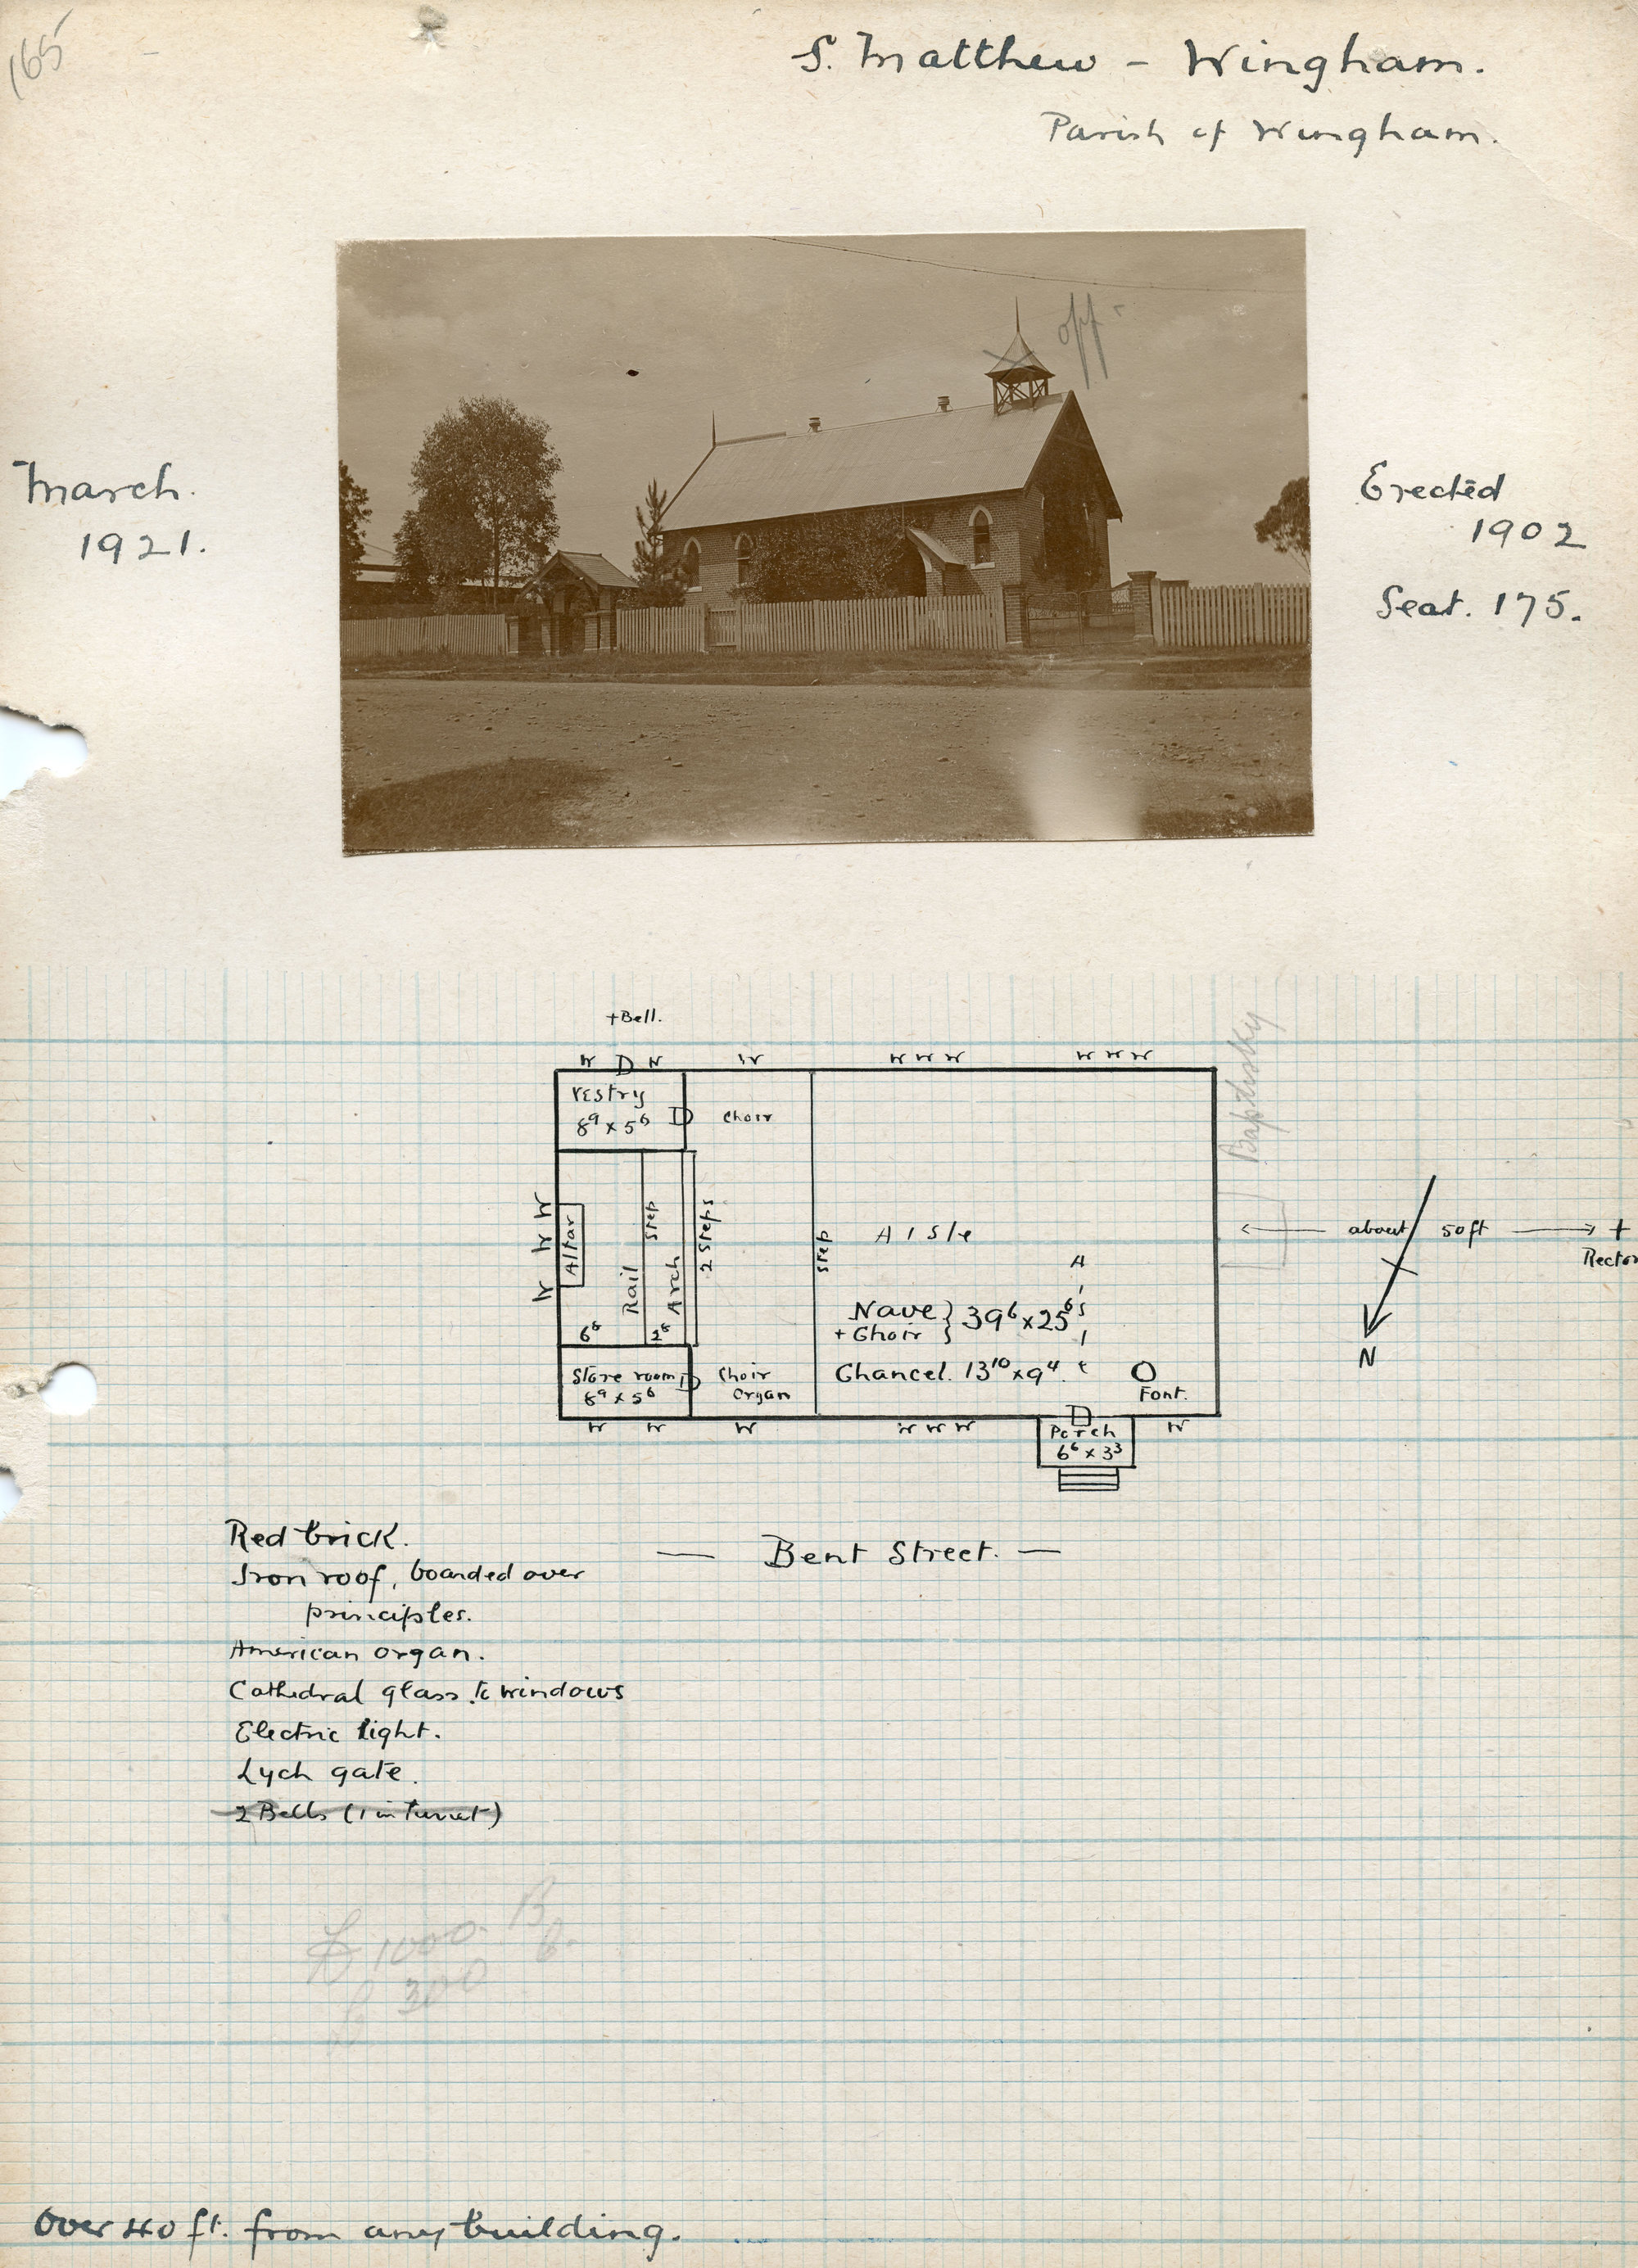 165
S. Matthew - Wingham.
Parish of Wingham.
off
March.
1921.
Erected
1902
Seat. 175.
+Bell.
W D W W W W W W W W
Vestry
8⁹ x 5⁶
D
Choir
Baptistry
W W W
Altar
Rail
Step
Arch
2 Steps
Step
Aisle
Aisle
about 50ft
+
Rector
N
Nave
+ Choir } 39⁶ x 25⁶
6⁸ 2⁸
Chancel. 13¹⁰ x 9⁴.
Store room D
8⁹ x 5⁶
Choir
Organ
Font.
D
W W W W W W W
Porch
6⁶ x 3³
Red brick.
— Bent Street. —
Iron roof, boarded over
principles.
American organ.
Cathedral glass to windows
Electric light.
Lych gate.
2 Bells (1 in turret)
£ 1000. B
300
Over 40 ft. from any building.